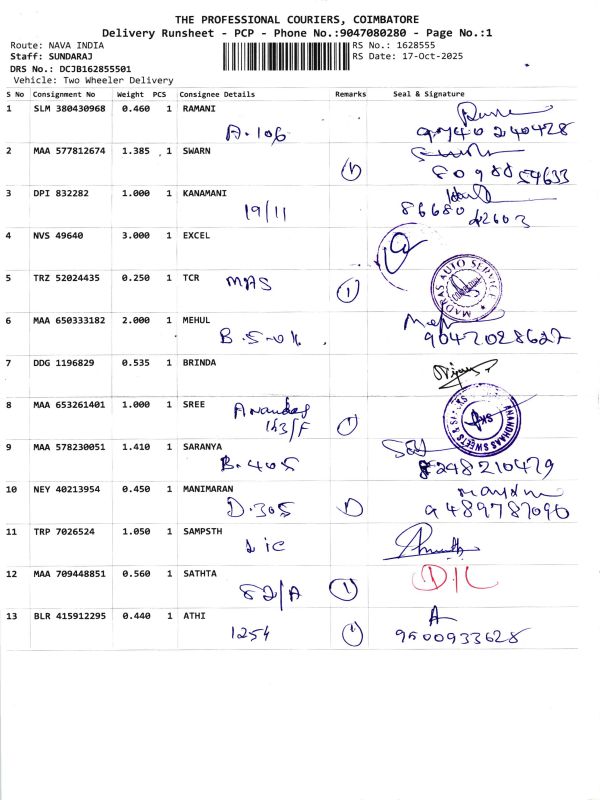 THE PROFESSIONAL COURIERS, COIMBATORE
Delivery Runsheet - PCP - Phone No.:9047080280 - Page No.:1
Route: NAVA INDIA RS No.: 1628555
Staff: SUNDARAJ RS Date: 17-Oct-2025
DRS No.: DCJB162855501
Vehicle: Two Wheeler Delivery
S No Consignment No Weight PCS Consignee Details Remarks Seal & Signature
1 SLM 380430968 0.460 1 RAMANI
A.106 9740240428
2 MAA 577812674 1.385 1 SWARN
1 8098854633
3 DPI 832282 1.000 1 KANAMANI
19/11 8668042603
4 NVS 49640 3.000 1 EXCEL
5 TRZ 52024435 0.250 1 TCR MAS 1 MADRAS AUTO SERVICE
6 MAA 650333182 2.000 1 MEHUL
B.5-01 9047028627
7 DDG 1196829 0.535 1 BRINDA
8 MAA 653261401 1.000 1 SREE
Anandas
153/F 1 ANANDHAAS SWEETS &
9 MAA 578230051 1.410 1 SARANYA
B.405 8248210479
10 NEY 40213954 0.450 1 MANIMARAN
D.305 1 9489787090
11 TRP 7026524 1.050 1 SAMPSTH
LIC
12 MAA 709448851 0.560 1 SATHTA D/L
82/A 1
13 BLR 415912295 0.440 1 ATHI A
1254 1 9500933628